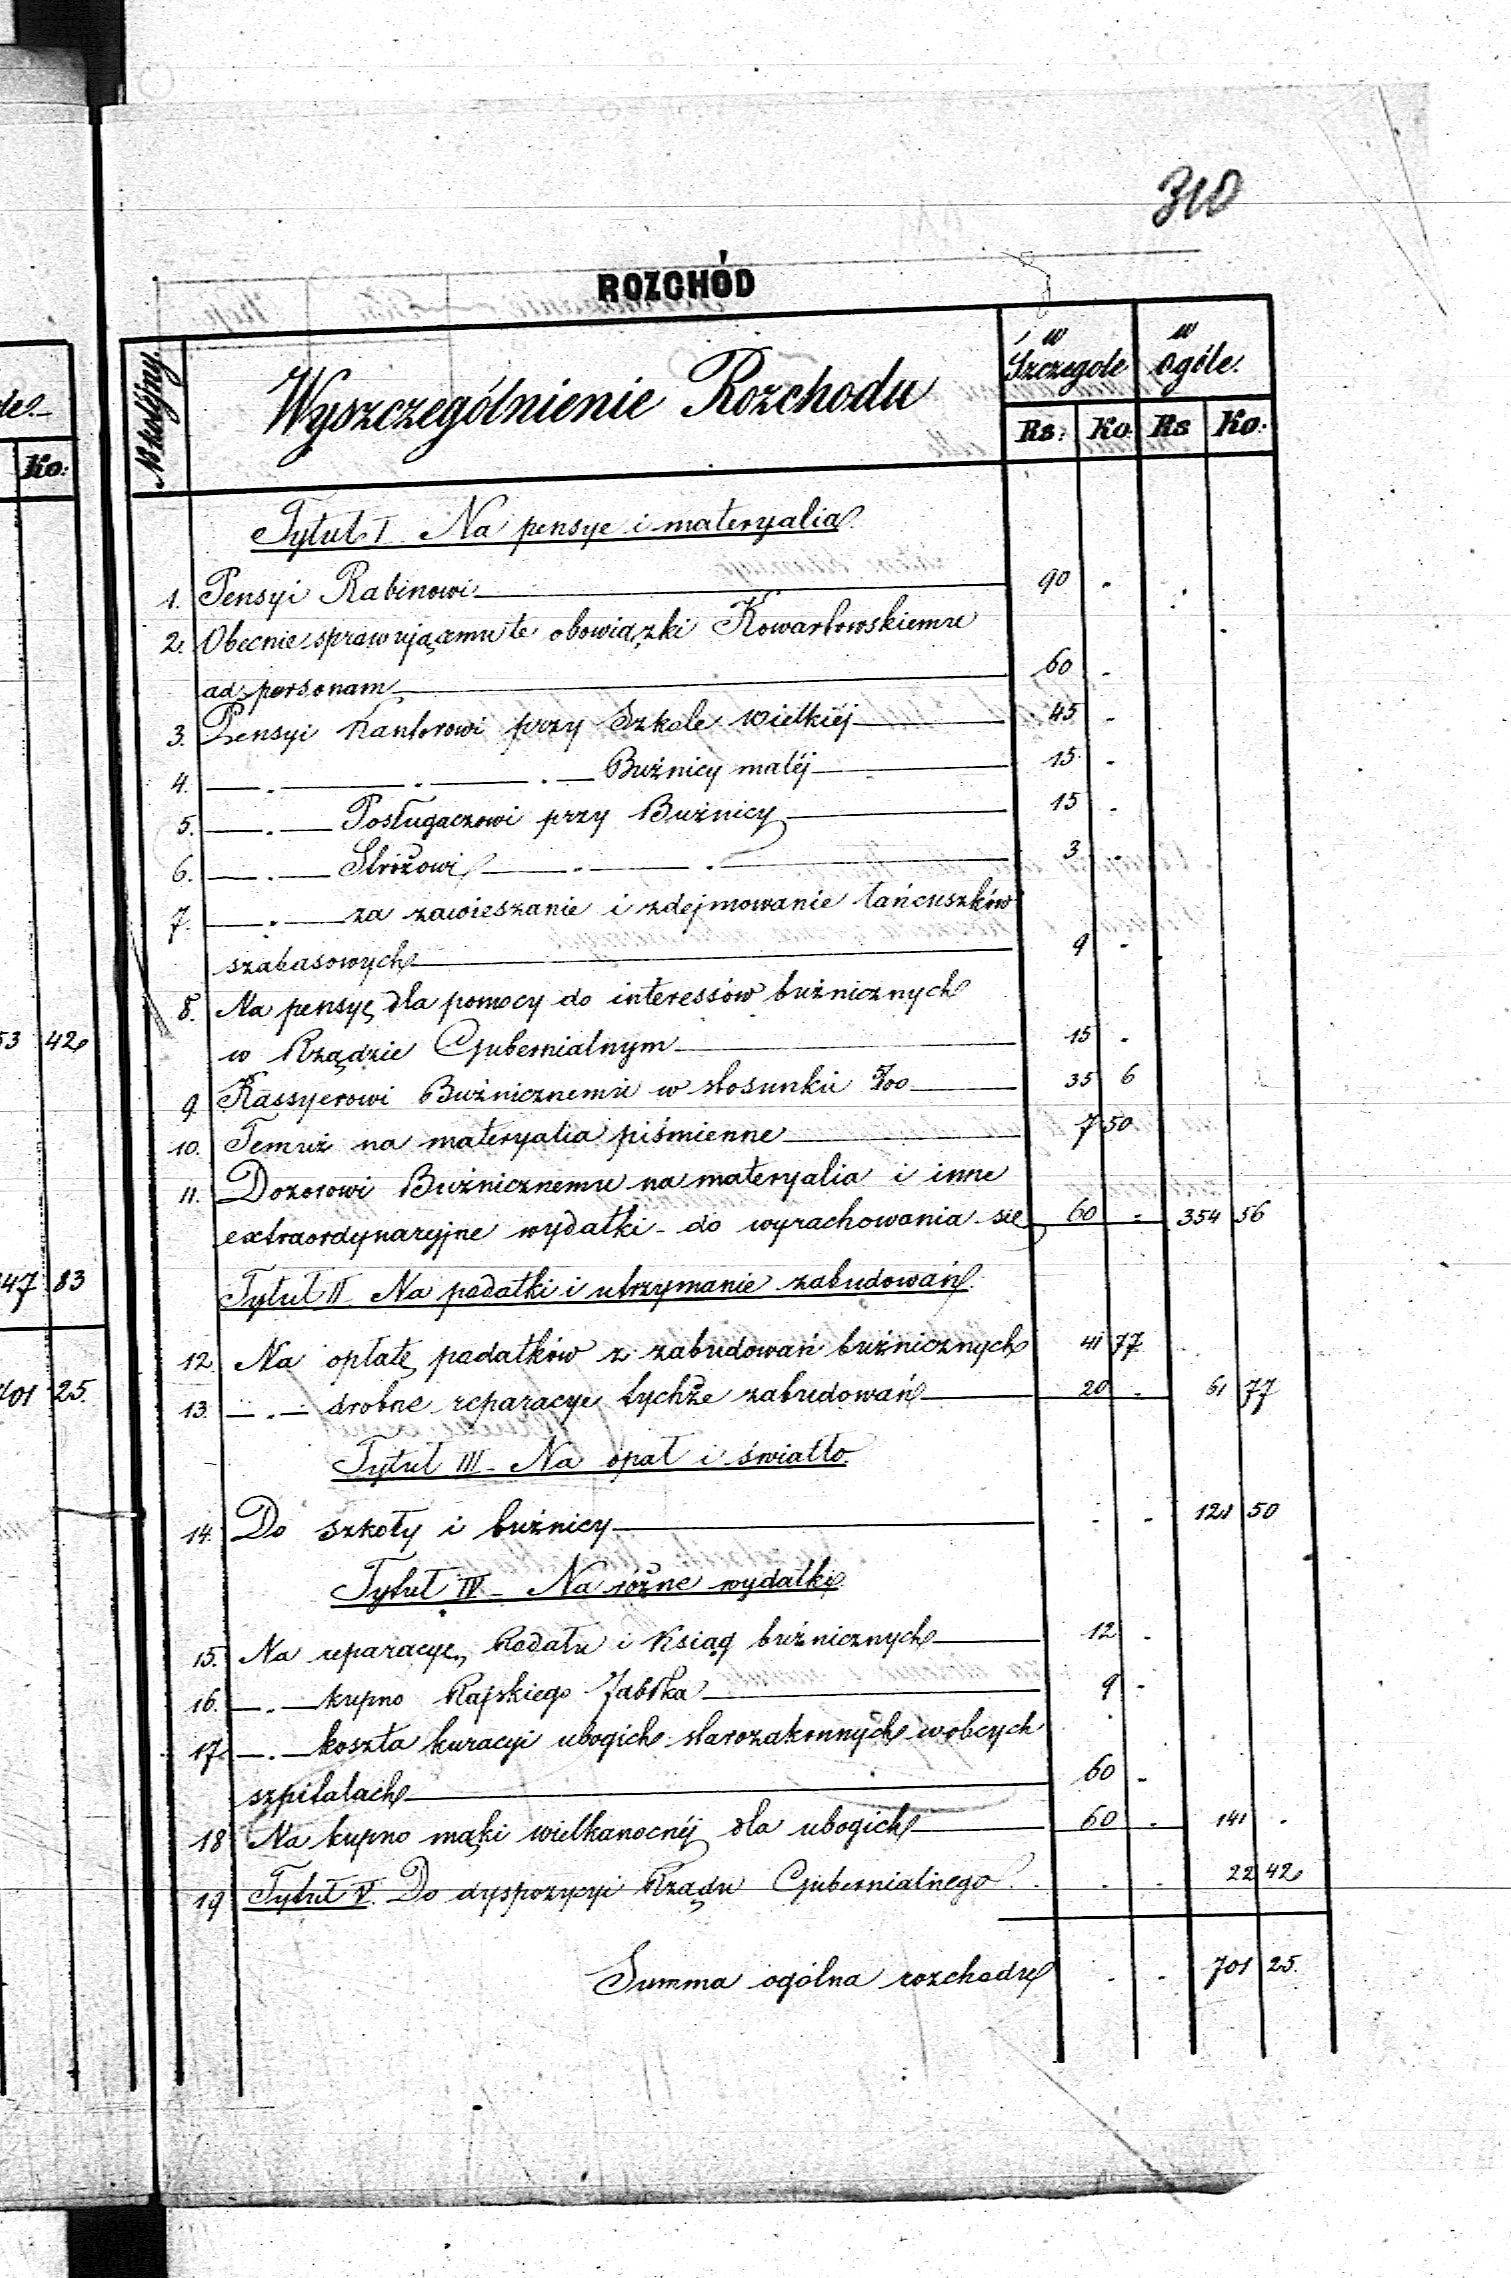 310
ROZCHÓD
№ kolejny.
Wyszczególnienie Rozchodu
w Szczególe
w ogóle.
Rs: Ko. Rs Ko.
Tytuł I Na pensye i materyalia
1. Pensyi Rabinowi 90 -
2. Obecnie sprawującemu te obowiązki Kowarłowskiemu
ad personam 60 -
3. Pensyi Kantorowi przy Szkole wielkiéj 45 -
4. — „ — „ — Buźnicy małéj 15 -
5. — „ — Posługaczowi przy Buźnicy 15 -
6. — „ — Stróżowi — „ — „ — 3 -
7. — „ — za zawieszanie i zdejmowanie łańcuszków
szabasowych 9 -
8. Na pensyę dla pomocy do interessów buźnicznych
w Rządzie Gubernialnym 15 -
9. Kassyerowi Buźnicznemu w stosunku 5/100 35 6
10. Temuż na materyalia piśmienne 7 50
11. Dozorowi Buźnicznemu na materyalia i inne
extraordynaryjne wydatki do wyrachowania się 60 - 354 56
Tytuł II Na podatki i utrzymanie zabudowań
12. Na opłatę podatków z zabudowań buźnicznych 41 77
13. — „ — drobne reparacye tychże zabudowań 20 - 61 77
Tytuł III - Na opał i światło.
14. Do szkoły i buźnicy - - 121 50
Tytuł IV - Na różne wydatki
15. Na reparacye Rodału i Ksiąg buźnicznych 12 -
16. — „ — kupno Rajskiego Jabłka 9 -
17. — „ — koszta kuracyi ubogich starozakonnych w obcych
szpitalach 60 -
18 Na kupno mąki wielkanocnéj dla ubogich 60 - 141 -
19 Tytuł V. Do dyspozycyi Rządu Gubernialnego - - 22 42
Summa ogólna rozchodu - - 701 25.
Ko:
53 42
47 83
701 25.